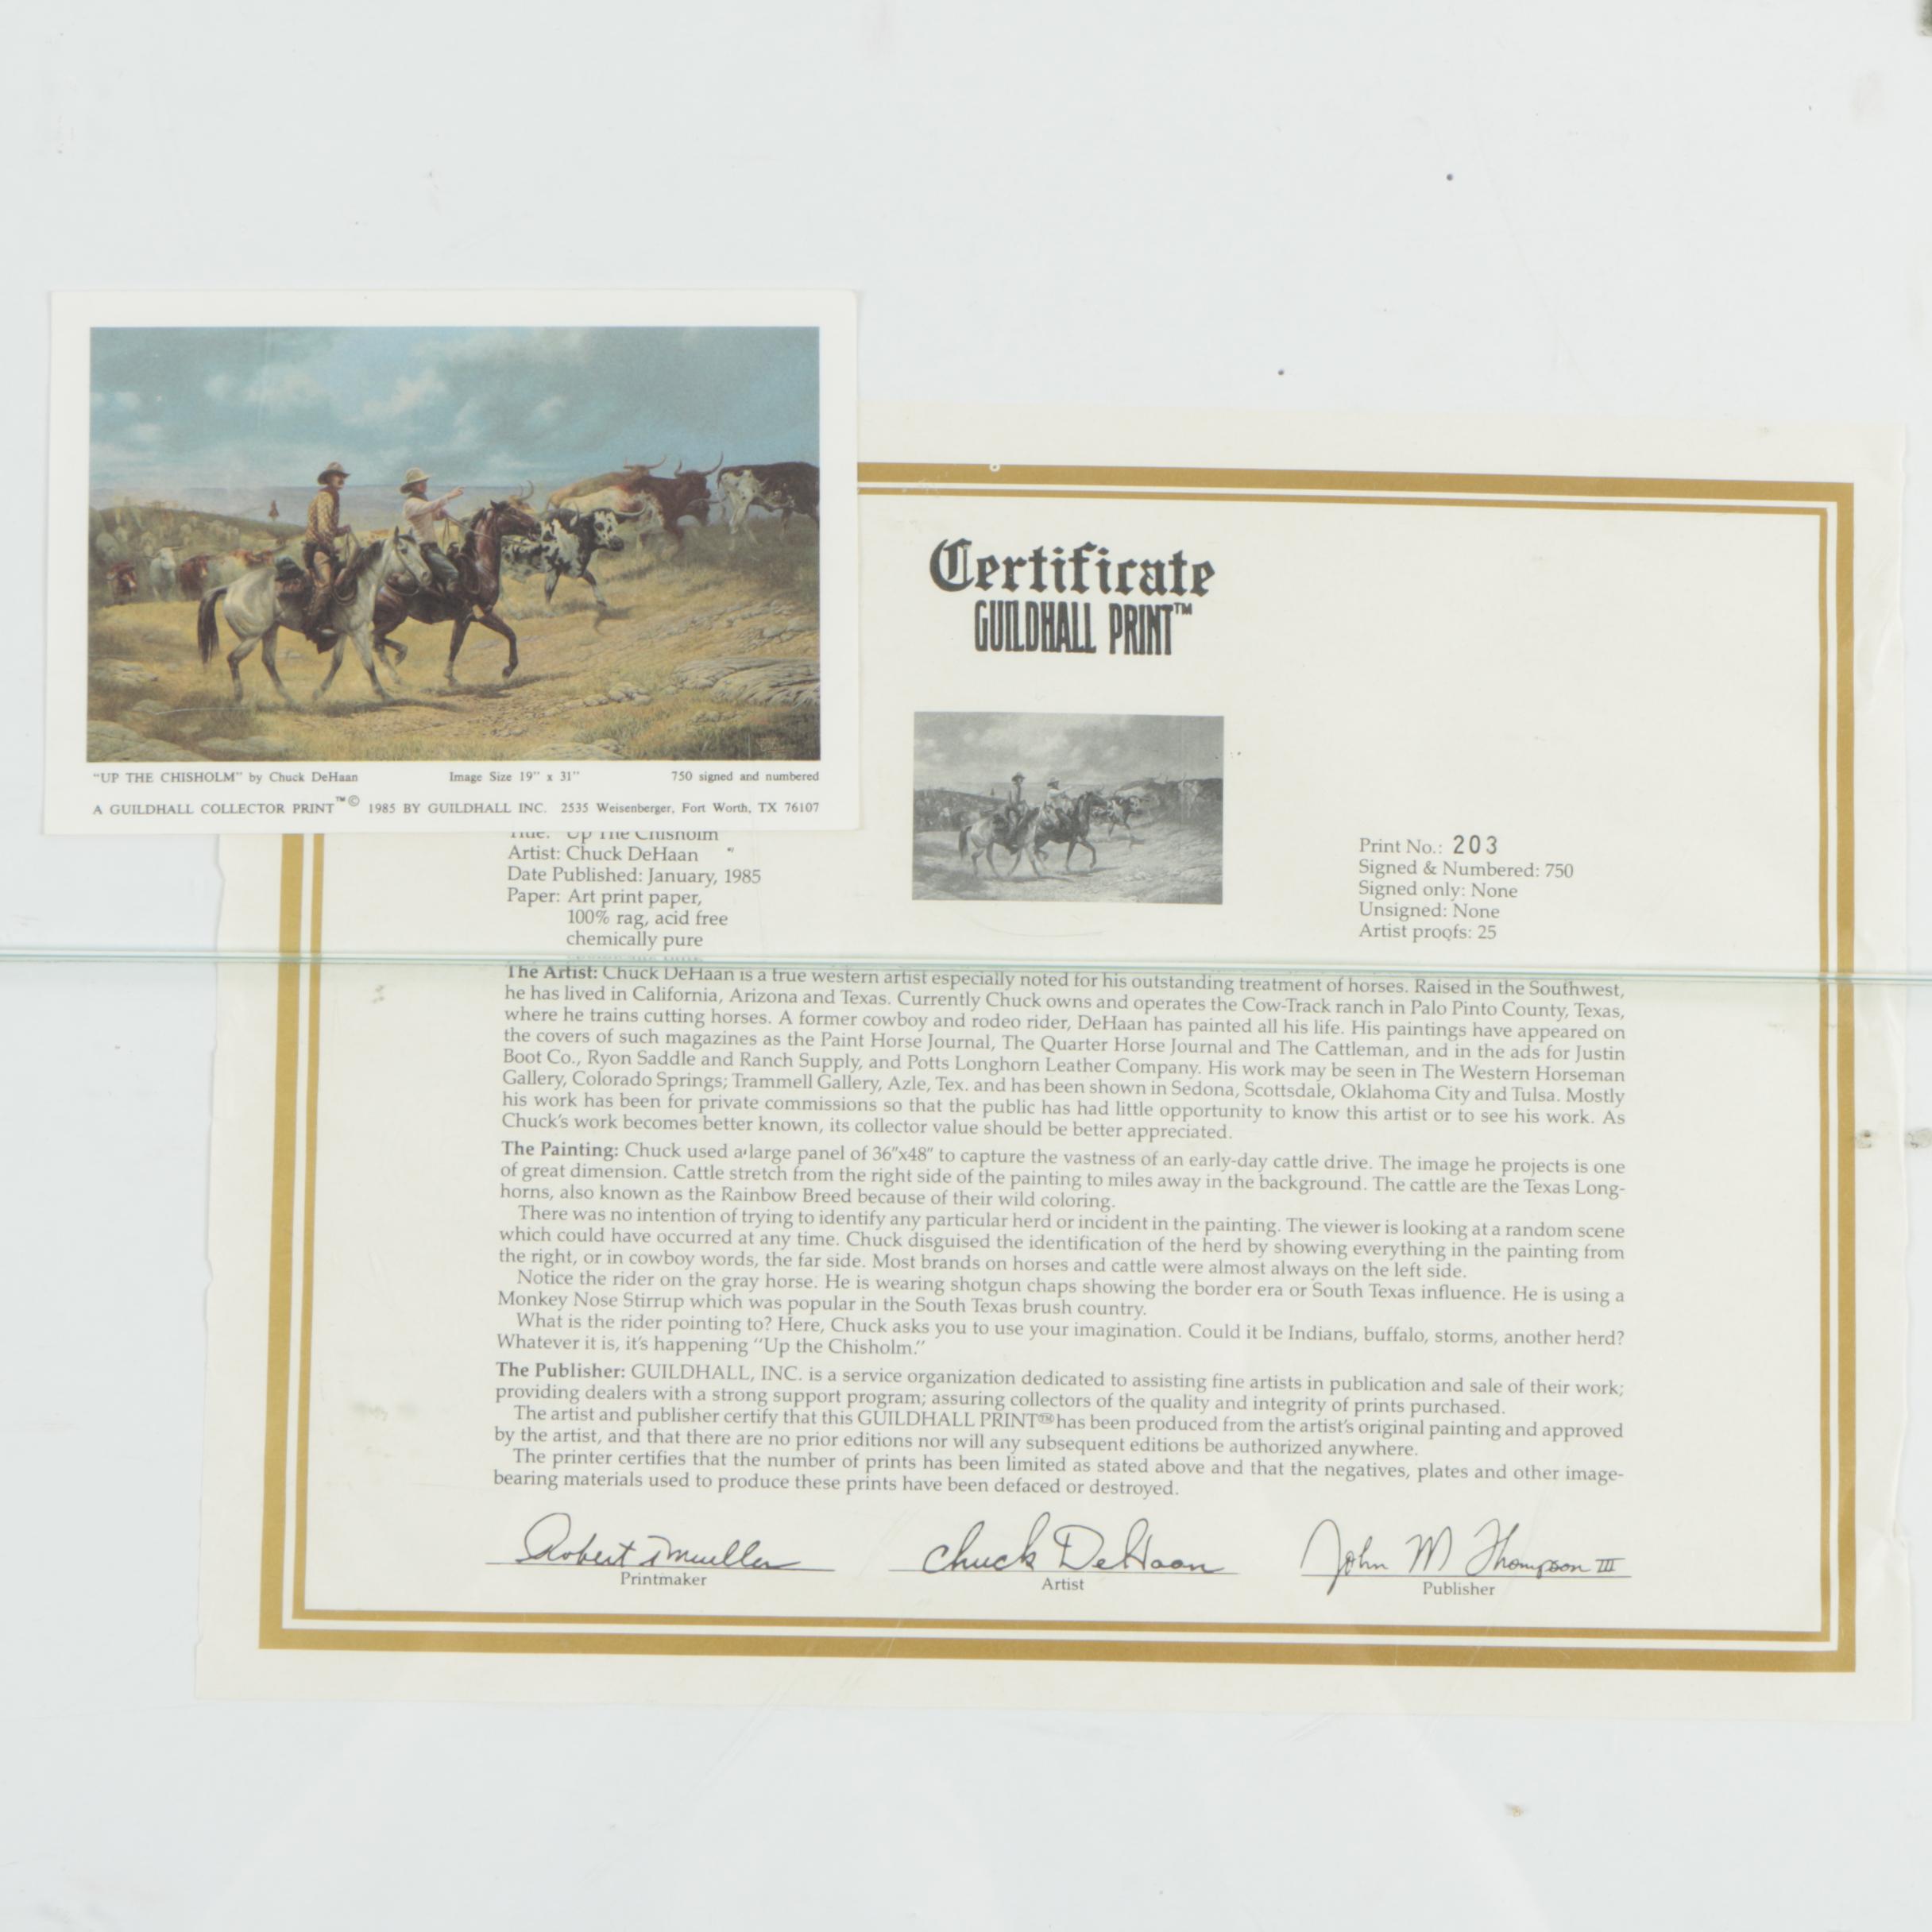 "UP THE CHISHOLM" by Chuck DeHaan Image Size 19" x 31" 750 signed and numbered
A GUILDHALL COLLECTOR PRINT™© 1985 BY GUILDHALL INC. 2535 Weisenberger, Fort Worth, TX 76107
Certificate
GUILDHALL PRINT™
Title: Up The Chisholm
Artist: Chuck DeHaan
Date Published: January, 1985
Paper: Art print paper,
100% rag, acid free
chemically pure
Print No.: 203
Signed & Numbered: 750
Signed only: None
Unsigned: None
Artist proofs: 25
The Artist: Chuck DeHaan is a true western artist especially noted for his outstanding treatment of horses. Raised in the Southwest,
he has lived in California, Arizona and Texas. Currently Chuck owns and operates the Cow-Track ranch in Palo Pinto County, Texas,
where he trains cutting horses. A former cowboy and rodeo rider, DeHaan has painted all his life. His paintings have appeared on
the covers of such magazines as the Paint Horse Journal, The Quarter Horse Journal and The Cattleman, and in the ads for Justin
Boot Co., Ryon Saddle and Ranch Supply, and Potts Longhorn Leather Company. His work may be seen in The Western Horseman
Gallery, Colorado Springs; Trammell Gallery, Azle, Tex. and has been shown in Sedona, Scottsdale, Oklahoma City and Tulsa. Mostly
his work has been for private commissions so that the public has had little opportunity to know this artist or to see his work. As
Chuck's work becomes better known, its collector value should be better appreciated.
The Painting: Chuck used a large panel of 36"x48" to capture the vastness of an early-day cattle drive. The image he projects is one
of great dimension. Cattle stretch from the right side of the painting to miles away in the background. The cattle are the Texas Long-
horns, also known as the Rainbow Breed because of their wild coloring.
There was no intention of trying to identify any particular herd or incident in the painting. The viewer is looking at a random scene
which could have occurred at any time. Chuck disguised the identification of the herd by showing everything in the painting from
the right, or in cowboy words, the far side. Most brands on horses and cattle were almost always on the left side.
Notice the rider on the gray horse. He is wearing shotgun chaps showing the border era or South Texas influence. He is using a
Monkey Nose Stirrup which was popular in the South Texas brush country.
What is the rider pointing to? Here, Chuck asks you to use your imagination. Could it be Indians, buffalo, storms, another herd?
Whatever it is, it's happening "Up the Chisholm."
The Publisher: GUILDHALL, INC. is a service organization dedicated to assisting fine artists in publication and sale of their work;
providing dealers with a strong support program; assuring collectors of the quality and integrity of prints purchased.
The artist and publisher certify that this GUILDHALL PRINT™ has been produced from the artist's original painting and approved
by the artist, and that there are no prior editions nor will any subsequent editions be authorized anywhere.
The printer certifies that the number of prints has been limited as stated above and that the negatives, plates and other image-
bearing materials used to produce these prints have been defaced or destroyed.
Robert Mueller Chuck DeHaan John M Thompson III
Printmaker Artist Publisher